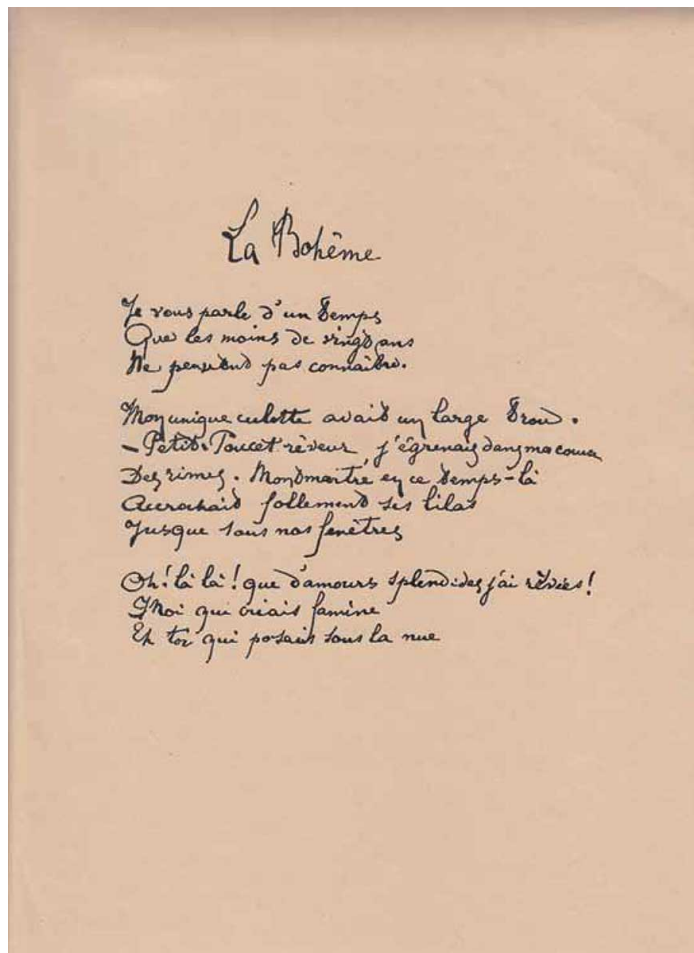 La Bohême
Je vous parle d'un temps
Que les moins de vingt ans
Ne peuvent pas connaître.
Mon unique culotte avait un large trou.
– Petit-Poucet rêveur j'égrenais dans ma course
Des rimes. Montmartre en ce temps-là
Accrochait follement ses lilas
Jusque sous nos fenêtres
Oh! là là! que d'amours splendides j'ai rêvées!
Moi qui criais famine
Et toi qui posais sous la nue